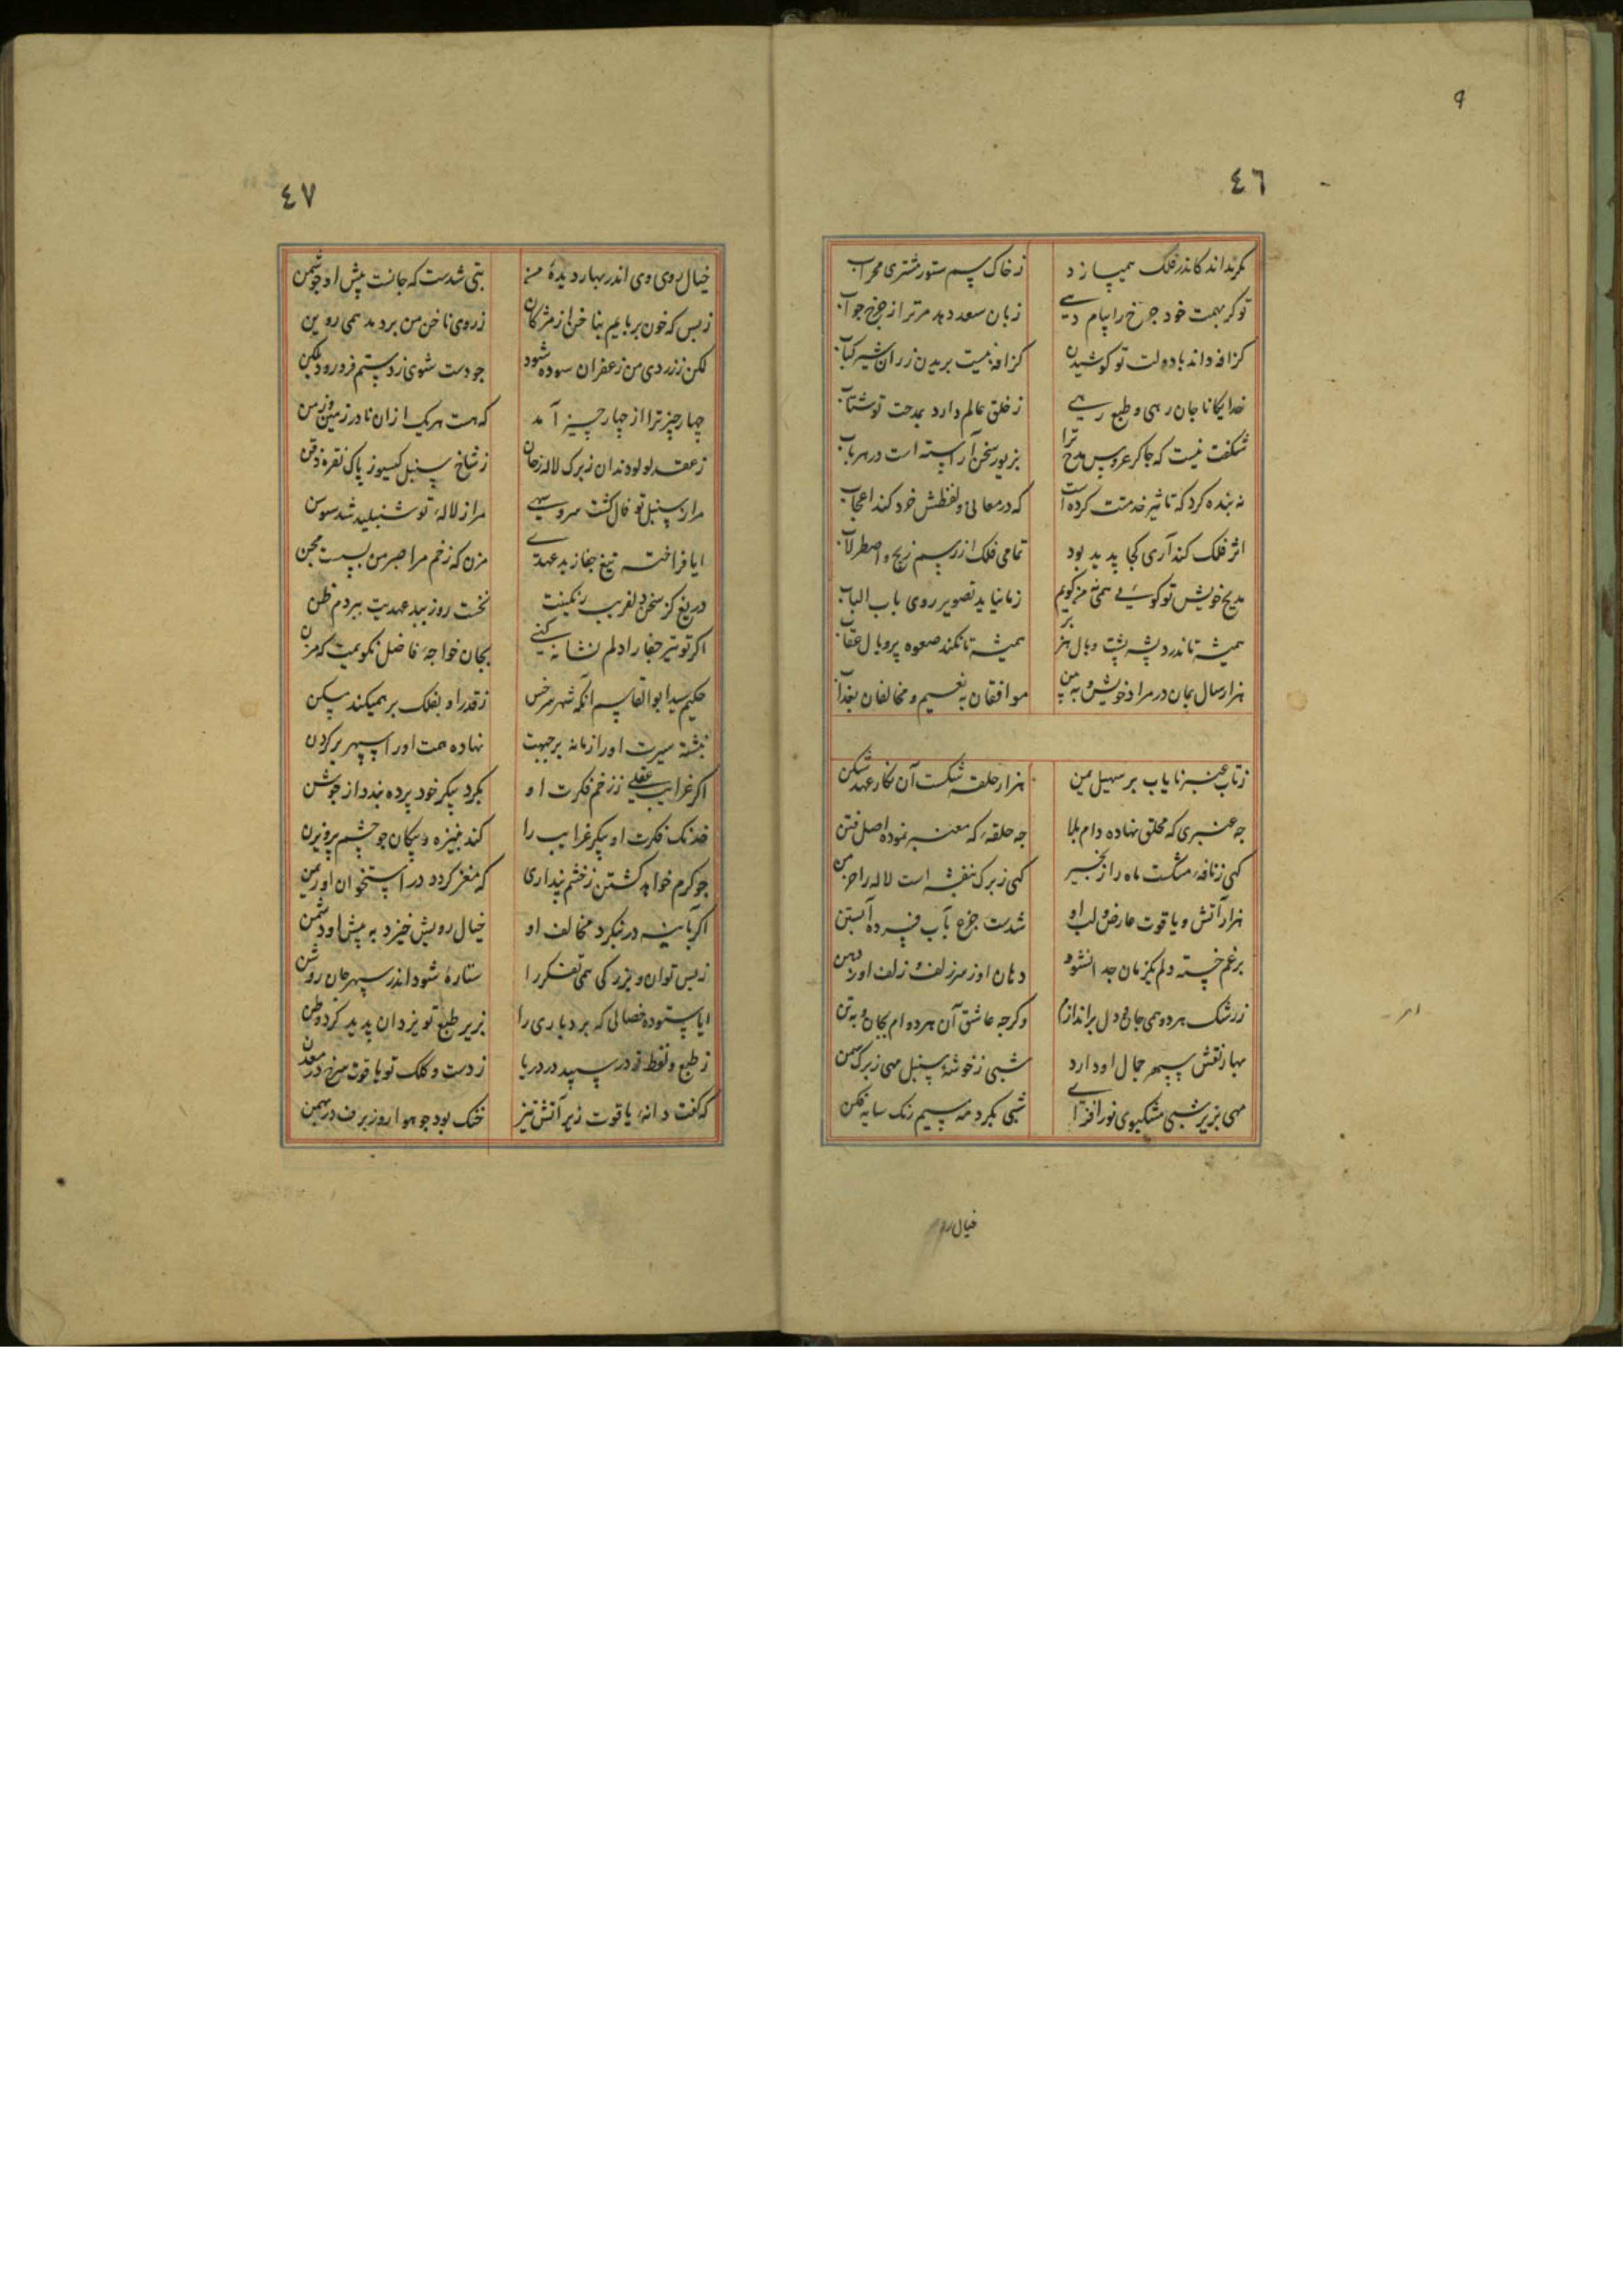 ۹
٤٦
مکرنداند کاندر فلک همیسازد زخاک سم ستور مشتری محراب
توکر بهمت خود چرخ را پیام دهی زبان سعد دهد مرترا ز چرخ جواب
کزافه داند با دولت تو کوشیدن کزافه نیست بریدن ز ران شیر کباب
خدایکانا جان رهی و طبع رهی ز خلق عالم دارد بمدحت تو شتاب
شکفت نیست که چاکر عروس مدح ترا بزیور سخن آراسته است در هر باب
نه بنده کرد که تاثیر خدمتت کرده است که در معانی و لفظش خرد کند اعجاب
اثر فلک کند آری کجا پدید بود تمامی فلک از رسم زیج و اصطرلاب
مدیح خویش تو کوئی همی نه من کویم زما نیاید تصویر روی باب الباب
همیشه تا ندرد پشه پشت و بال هزبر همیشه تا نکند صعوه پر و بال عقاب
هزار سال بمان در مراد خویش و ببین موافقان به نعیم و مخالفان بعذاب
زتاب عنبر نایاب بر سهیل یمن هزار حلقه شکست آن نکار عهد شکن
چه عنبری که بحلق نهاده دام بلا چه حلقه که معنبر نموده اصل فتن
کهی ز نافه مشکست ماه را زنجیر کهی ز برک بنفشه است لاله را خرمن
هزار آتش و یاقوت عارض و لب او شدست جزع بآب فسرده آبستن
بر غم خسته دلم یکزمان جدا نشود دهان او ز سر زلف و زلف او ز دهن
ز رشک هردو همی جان و دل براندازم وکرچه عاشق آن هردوام بجان و به تن
بهار نقش سپهر جمال او دارد شبی ز خوشه سنبل مهی ز برک سمن
مهی بزیر شبی مشکبوی نور افزای شبی بکرد مه سیم رنک سایه فکن
خیال رو
٤٧
خیال روی وی اندر بهار دیدهٔ من بتی شدست که جانست پیش او چو شمن
زبس که خون بربایم بناخن از مژکان ز روی ناخن من بردمد همی روین
لکن ز زردی من زعفران سوده شود چو دست شوی ز دستم فرو رود بلکن
چهار چیز ترا از چهار چیز آمد که هست هریک از ان نادر زمین و زمن
ز عقد لولو دندان ز برک لاله زخان ز شاخ سنبل کیسو ز پاک نقره ذقن
مرا ز سنبل تو فال کشت سروسهی مرا ز لاله تو شنبلید شد سوسن
ایا فراخته تیغ جفا ز بدعهدی مزن که زخم مرا صبر من بست مجن
دریغ کز سخن دلفریب رنکینت نخست روز ببد عهدیت نبردم ظن
اکر تو تیر جفا را دلم نشانه کنی بجان خواجه فاضل نکویمت که مزن
حکیم سید ابوالقاسم آنکه شهر سرخس ز قدر او بفلک بر همیکند مسکن
نبشته سیرت او را زمانه بر جبهت نهاده همت او را سپهر بر کردن
اکر غرایب عقلی ز زخم فکرت او بکرد پیکر خود پرده بندد از جوشن
خدنک فکرت او پیکر غرایب را کند بنیزه و پیکان چو چشم پرویزن
چو کرم خواهد کشتن ز خشم پنداری که مغز کردد در استخوان او ریمن
اکر بآینه در بنکرد مخالف او خیال رویش خیزد به پیش او دشمن
زبس توان و بزرکی همی تفکر را ستاره شود اندر سپهر جان روشن
ایا ستوده خصالی که بردباری را بزیر طبع تو یزدان پدید کرد وطن
ز طبع و لفظ تو در سپید در دریا ز دست و کلک تو یاقوت سرخ در معدن
که کفت دانه یاقوت زیر آتش تیز خنک بود چو هوا روز برف در بهمن